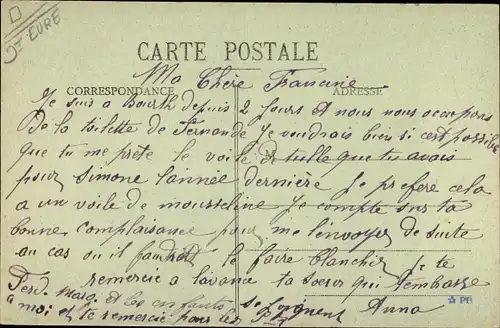 D
Jt EURE
CARTE POSTALE
Ma Chère Francine
CORRESPONDANCE ADRESSE
Je suis a Bourth depuis 2 jours et nous nous occupons
de la toilette de Fernande je voudrais bien si c'est possible
que tu me prete le voile de tulle que tu avais
M
pour Simone l'année dernière je prefere cela
a un voile de mousseline je compte sur ta
bonne complaisance pour me l'envoyer de suite
au cas ou il faudrait le faire blanchir je te
remercie a l'avance ta soeur qui t'embrasse
Anna
Ferd. Marg et les enfants se joignent
a moi et te remercie pour les
PB